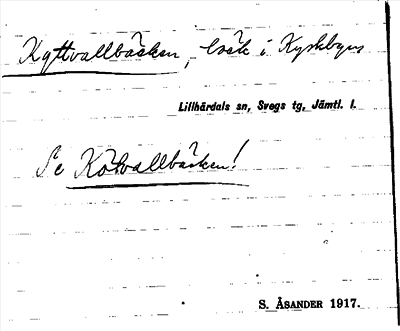 Kyttvallbäcken, bäck i Kyrkbyns
Lillhärdals sn, Svegs tg, Jämtl. l.
Se Kötvallbäcken!
S. ÅSANDER 1917.